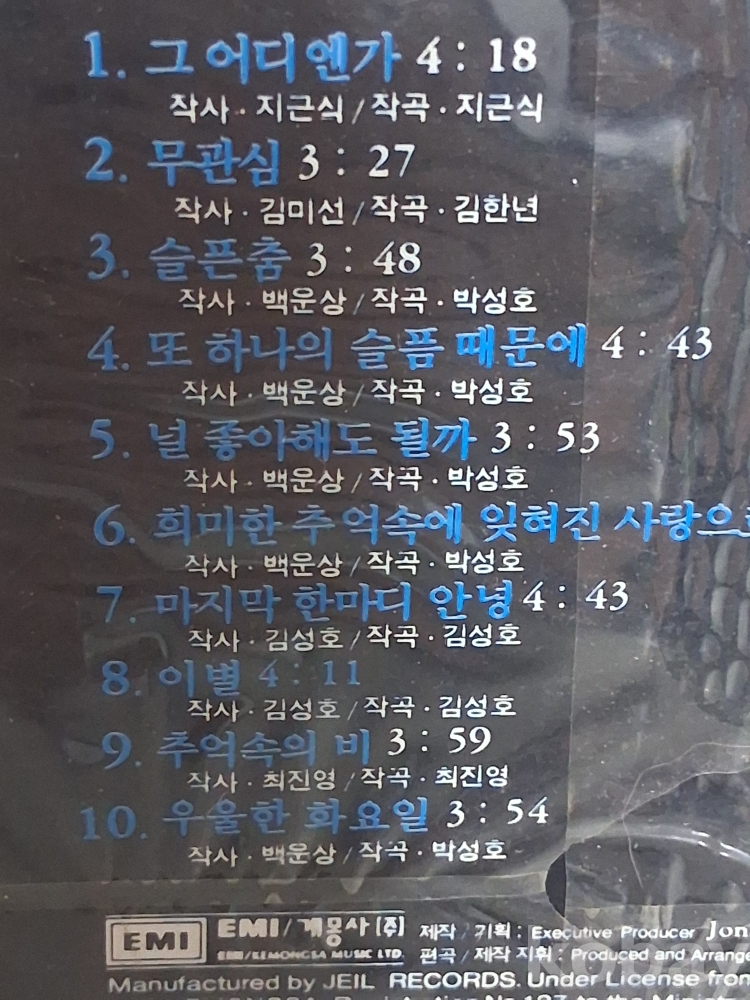 1. 그 어디엔가 4 : 18
작사 · 지근식 / 작곡 · 지근식
2. 무관심 3 : 27
작사 · 김미선 / 작곡 · 김한년
3. 슬픈춤 3 : 48
작사 · 백운상 / 작곡 · 박성호
4. 또 하나의 슬픔 때문에 4 : 43
작사 · 백운상 / 작곡 · 박성호
5. 널 좋아해도 될까 3 : 53
작사 · 백운상 / 작곡 · 박성호
6. 희미한 추억속에 잊혀진 사랑으로
작사 · 백운상 / 작곡 · 박성호
7. 마지막 한마디 안녕 4 : 43
작사 · 김성호 / 작곡 · 김성호
8. 이별 4 : 11
작사 · 김성호 / 작곡 · 김성호
9. 추억속의 비 3 : 59
작사 · 최진영 / 작곡 · 최진영
10. 우울한 화요일 3 : 54
작사 · 백운상 / 작곡 · 박성호
EMI EMI/계몽사 (주) 제작 / 기획 : Executive Producer Jon
EMI/KEMONGSA MUSIC LTD. 편곡 / 제작 지휘 : Produced and Arrange
Manufactured by JEIL RECORDS. Under License from